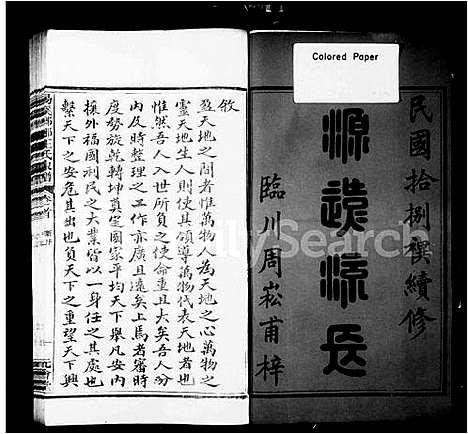 Colored Paper
民國拾捌禩續修
源遠流長
臨川周崧甫梓
敘
盈天地之間者惟萬物人為天地之心萬物之
靈天地生人則使其領導萬物代表天地者也
惟然吾人入世所負之使命重且大矣吾人分
內及時整理之工作亦廣且遠矣上焉者審時
度勢旋乾轉坤奠定國家平均天下舉凡安內
攘外福國利民之大業皆以一身任之其處也
繫天下之安危其出也負天下之重望天下興
卷首
FamilySearch